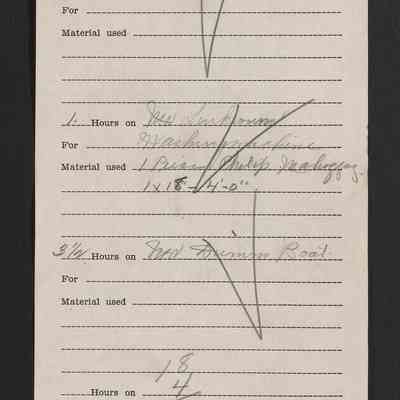 For
Material used
1. Hours on New
For Washing machine
Material used 1 Philip. Mahogany.
1 x 18 - 4'-0"
3 1/2 Hours on New Boat
For
Material used
18
4
Hours on